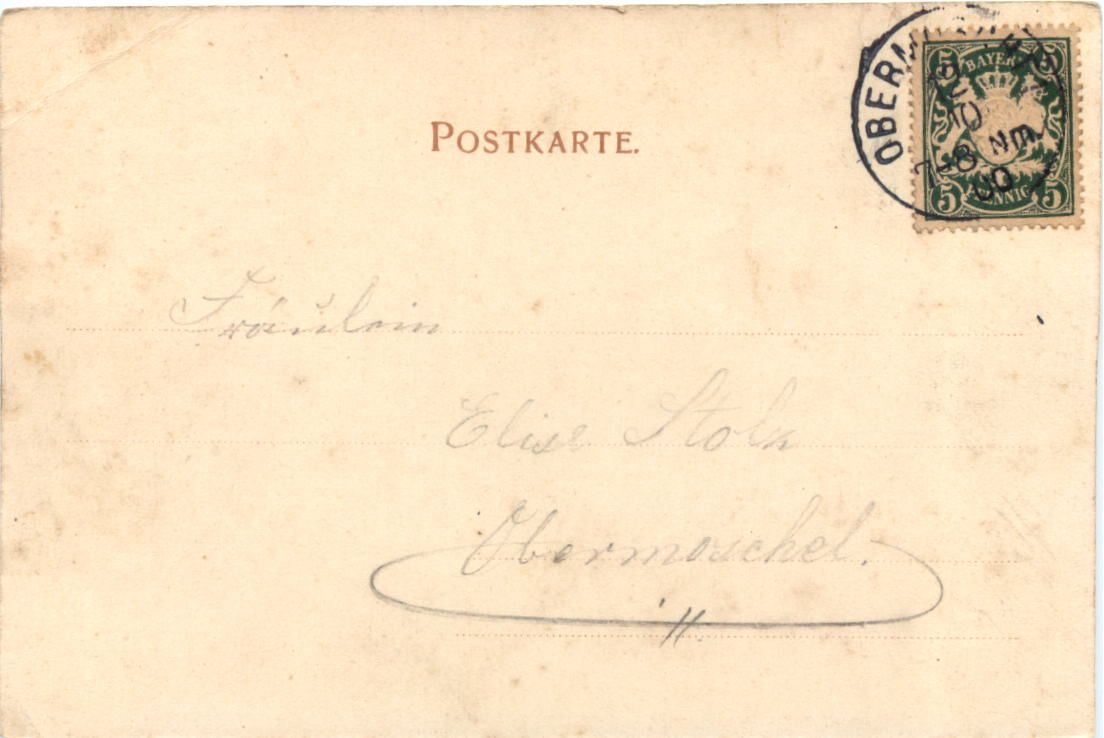 POSTKARTE.
5 5
BAYERN
OBERM
12
10
7-8 NM.
00
PFENNIG
5 5
Fräulein
Elise Stolz
Obermoschel.